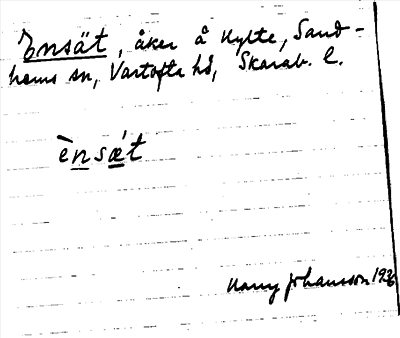 Ensät, åker å Hylte, Sand-
hems sn, Vartofta hd, Skarab. l.
ènsǽt
Harry Johansson 1926